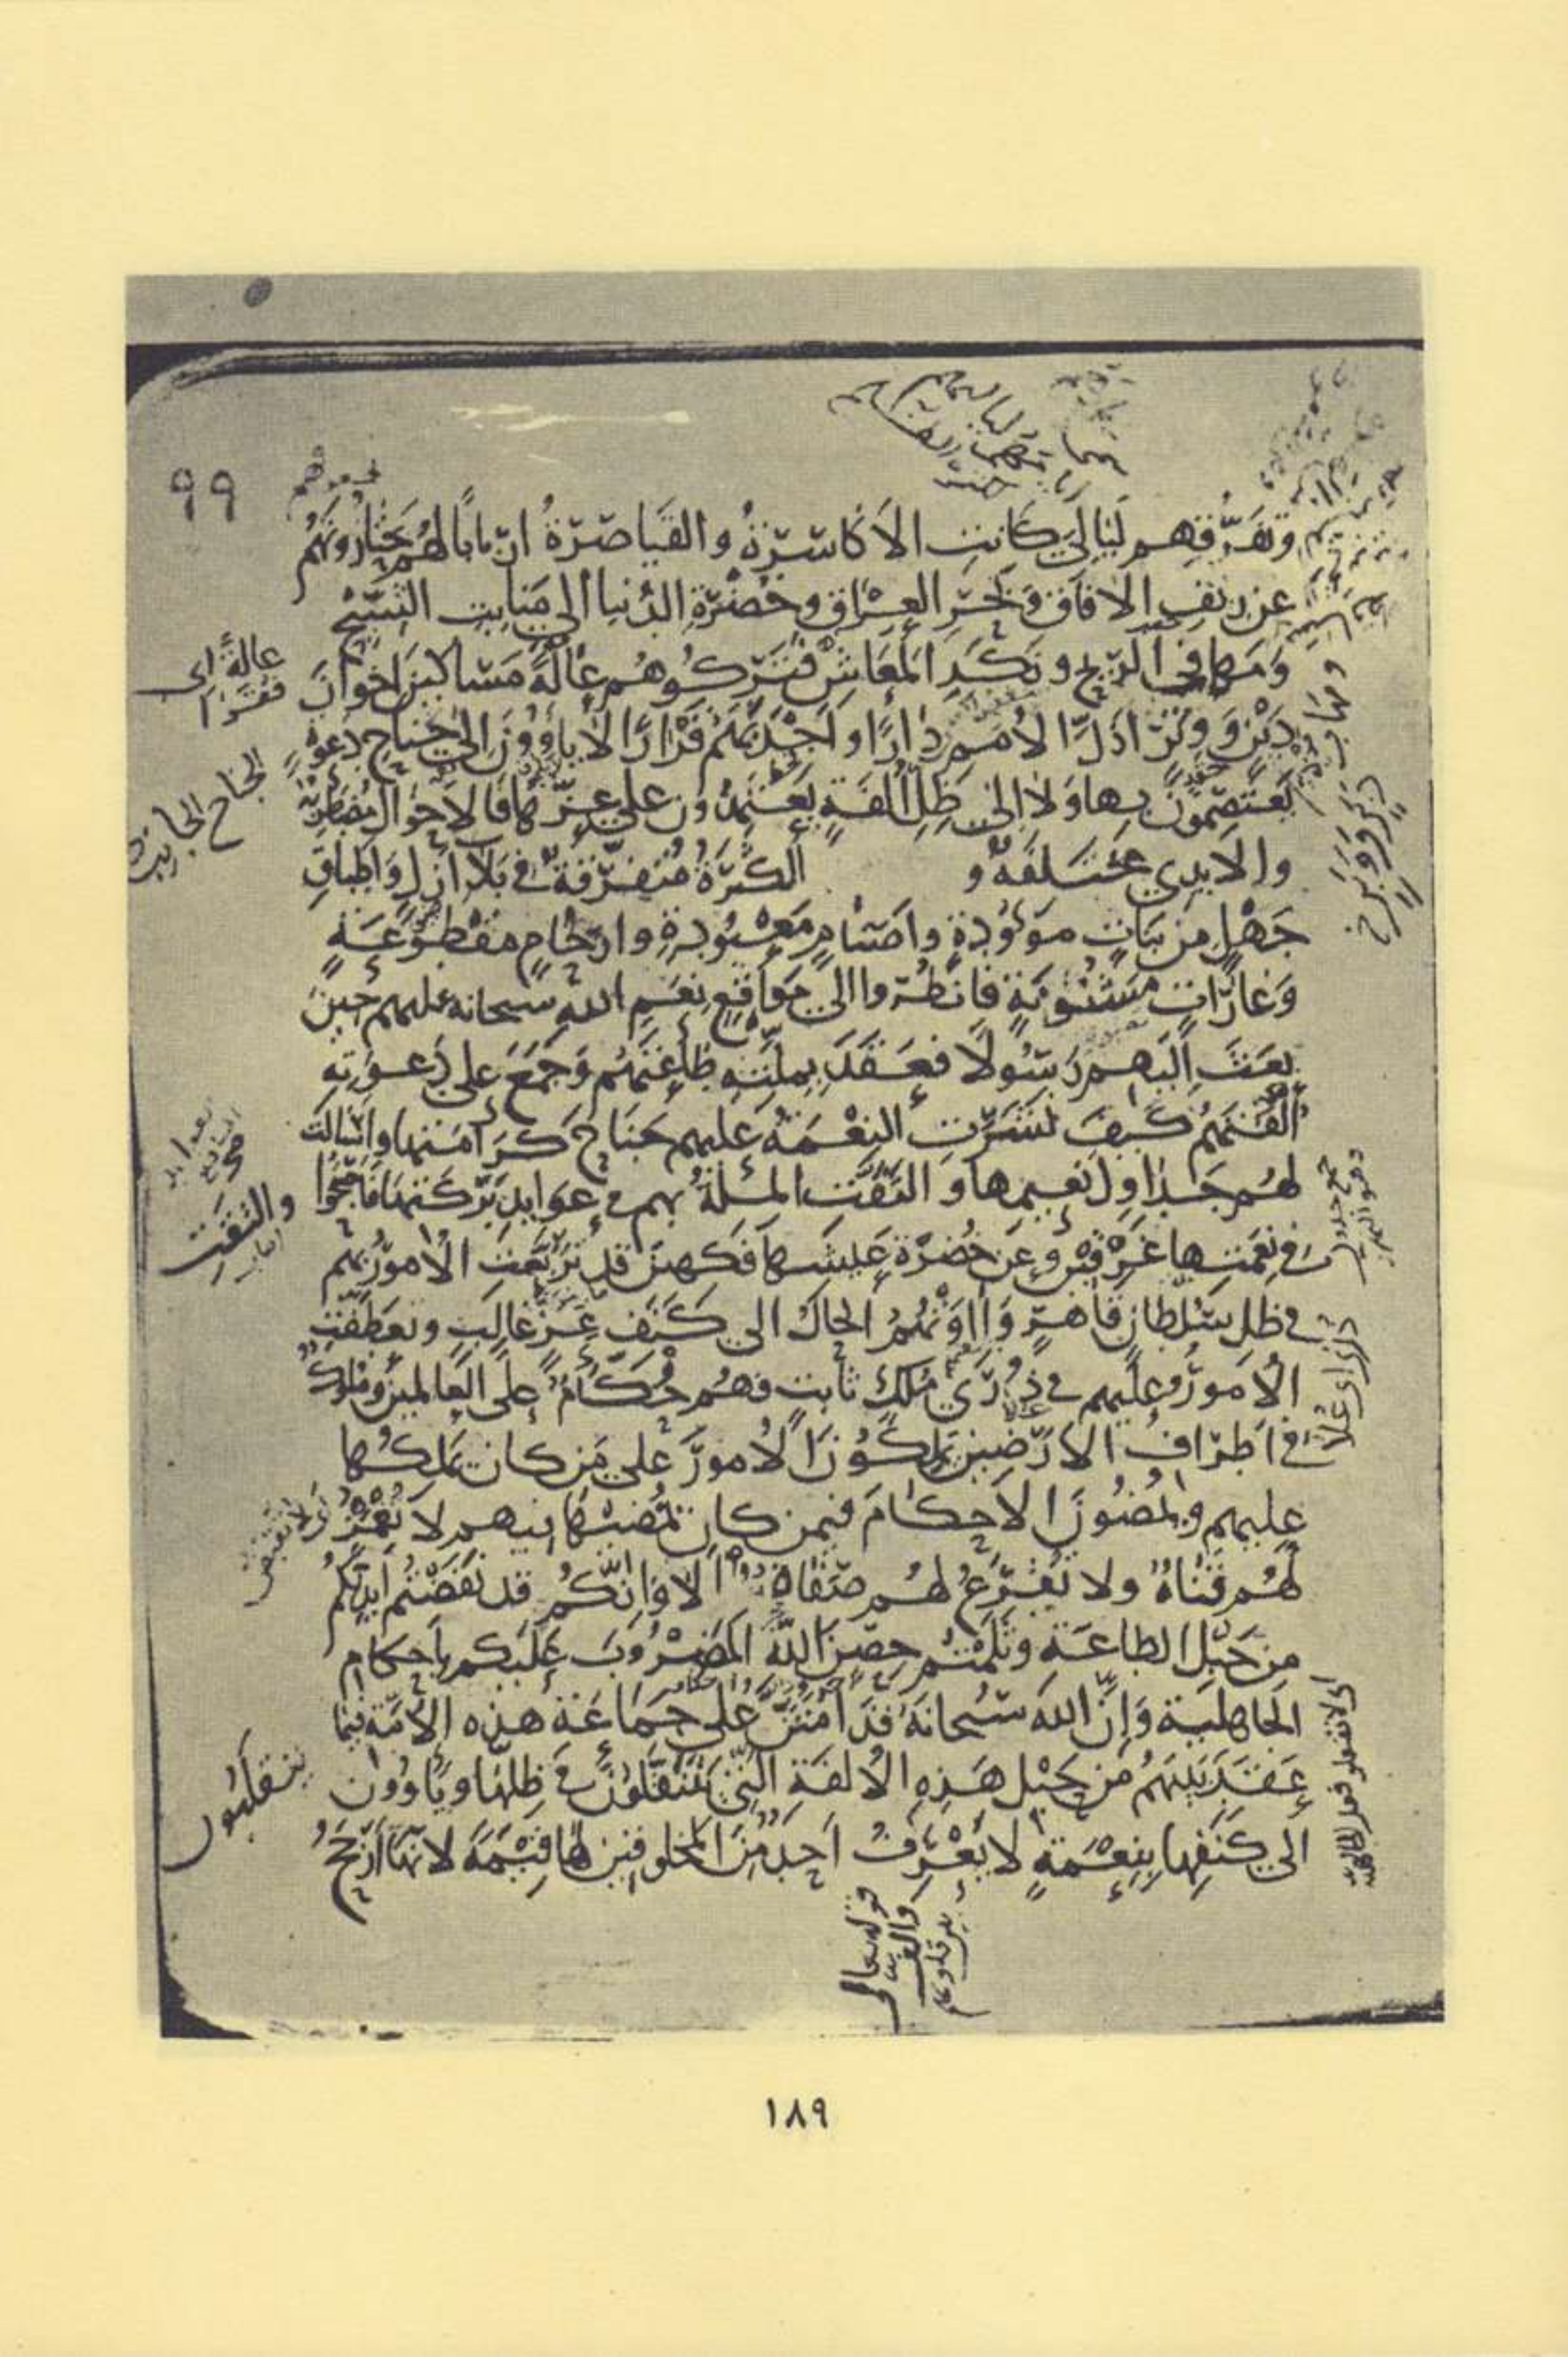 ٩٩
وتفرقهم ليالي كانت الاكاسرة والقياصرة اربابا لهم يحتازونهم
عن ريف الافاق وبحر العراق وخضرة الدنيا الى منابت الشيح
ومهافي الريح ونكد المعاش فتركوهم عالة مساكين اخوان
دبر ووبر اذل الامم دارا واجدبهم قرارا لا ياوون الى جناح دعوة
يعتصمون بها ولا الى ظل الفة يعتمدون على عزها فالاحوال مضطربة
والايدي مختلفة و الكثرة متفرقة في بلاء ازل واطباق
جهل من بنات موؤودة واصنام معبودة وارحام مقطوعة
وغارات مشنونة فانظروا الى مواقع نعم الله سبحانه عليهم حين
بعث اليهم رسولا فعقد بملته طاعتهم وجمع على دعوته
الفتهم كيف نشرت النعمة عليهم جناح كرامتها واسالت
لهم جداول نعيمها والتفت الملة بهم في عوايد بركتها فاصبحوا
في نعمتها غرقين وعن خضرة عيشها فكهين قد تربعت الامور بهم
في ظل سلطان قاهر واوتهم الحال الى كنف عز غالب وتعطفت
الامور عليهم في ذرى ملك ثابت فهم حكام على العالمين وملوك
في اطراف الارضين يملكون الامور على من كان يملكها
عليهم ويمضون الاحكام فيمن كان يمضيها فيهم لا تغمز
لهم قناة ولا تقرع لهم صفاة الا وانكم قد نفضتم ايديكم
من حبل الطاعة وثلمتم حصن الله المضروب عليكم باحكام
الجاهلية وان الله سبحانه قد امتن على جماعة هذه الامة فيما
عقد بينهم من حبل هذه الالفة التي يتنقلون في ظلها وياوون
الى كنفها بنعمة لا يعرف احد من المخلوقين لها قيمة لانها ارجح
عالة اى
فقرا
الجناح الجانب
والتفت
ينقلبون
قوله تعالى
والف
بين قلوبهم
١٨٩